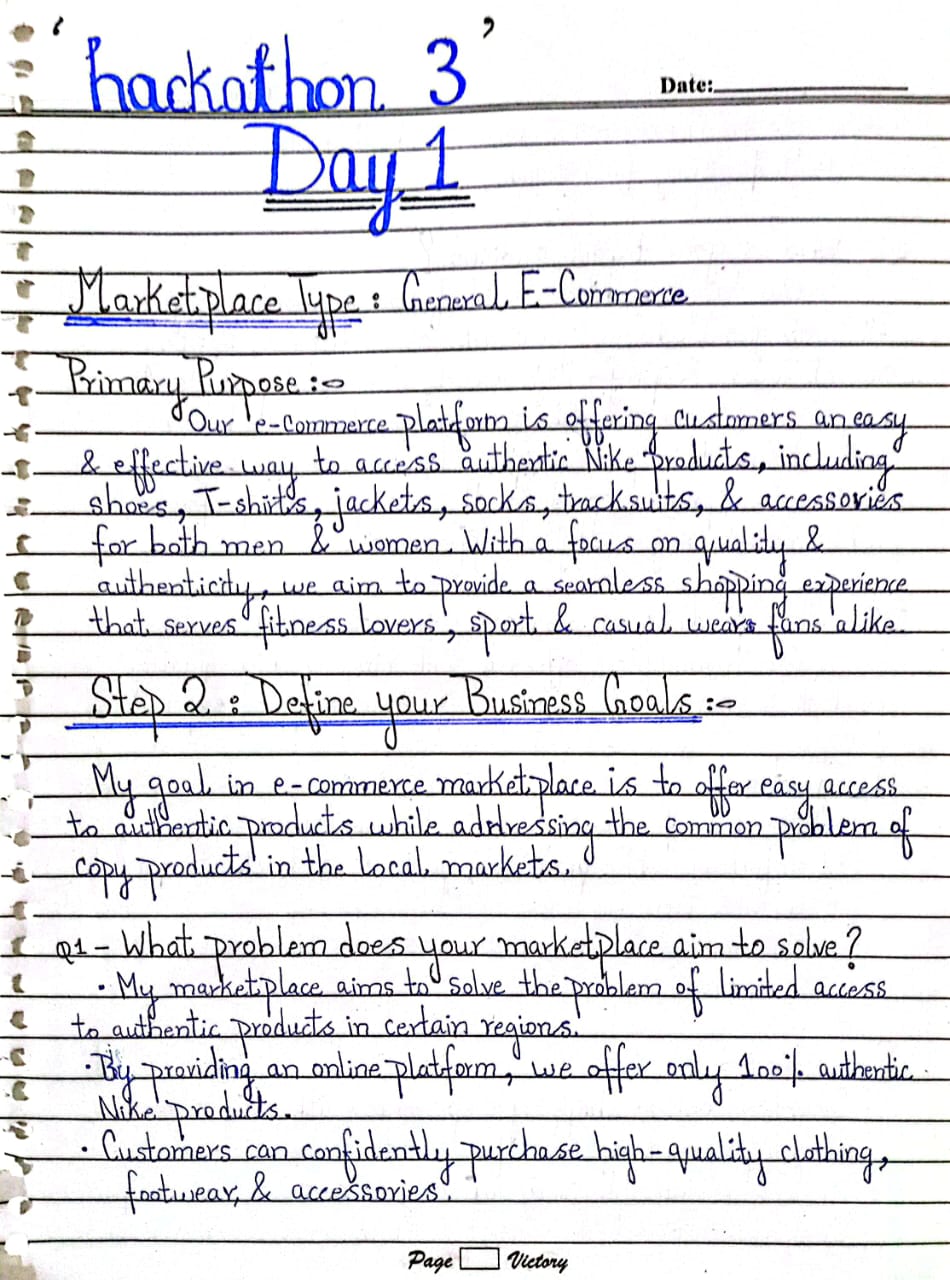 ‘hackathon 3’
Date:
Day 1
Marketplace Type: General E-Commerce
Primary Purpose:-
Our e-commerce platform is offering customers an easy
& effective way to access authentic Nike products, including
shoes, T-shirts, jackets, socks, tracksuits, & accessories
for both men & women. With a focus on quality &
authenticity, we aim to provide a seamless shopping experience
that serves fitness lovers, sport & casual wears fans alike.
Step 2: Define your Business Goals:-
My goal in e-commerce marketplace is to offer easy access
to authentic products while addressing the common problem of
copy products in the local markets.
Q1- What problem does your marketplace aim to solve?
• My marketplace aims to solve the problem of limited access
to authentic products in certain regions.
• By providing an online platform, we offer only 100% authentic
Nike products.
• Customers can confidently purchase high-quality clothing,
footwear, & accessories.
Page Victory